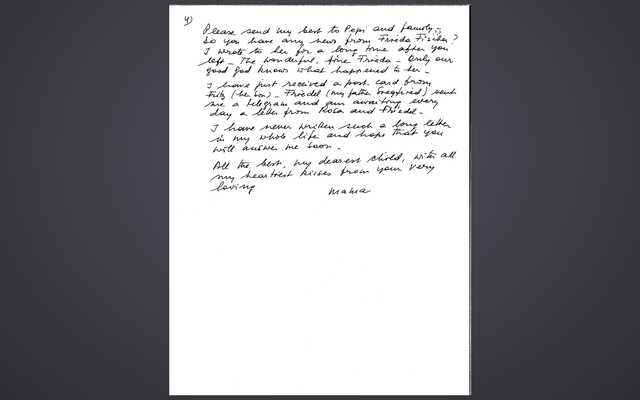 4)
Please send my best to Papi and family.
Do you have any news from Frieda Fischer?
I wrote to her for a long time after you
left _ The wonderful, fine Frieda _ Only our
good god knows what happened to her _
I have just received a post card from
Fritz (her son) _ Friedel (my father Siegfried) sent
me a telegram and am awaiting every
day a letter from Rosa and Friedel _
I have never written such a long letter
in my whole life and hope that you
will answer me soon _
All the best, my dearest child, with all
my heartiest kisses from your very
loving Mama